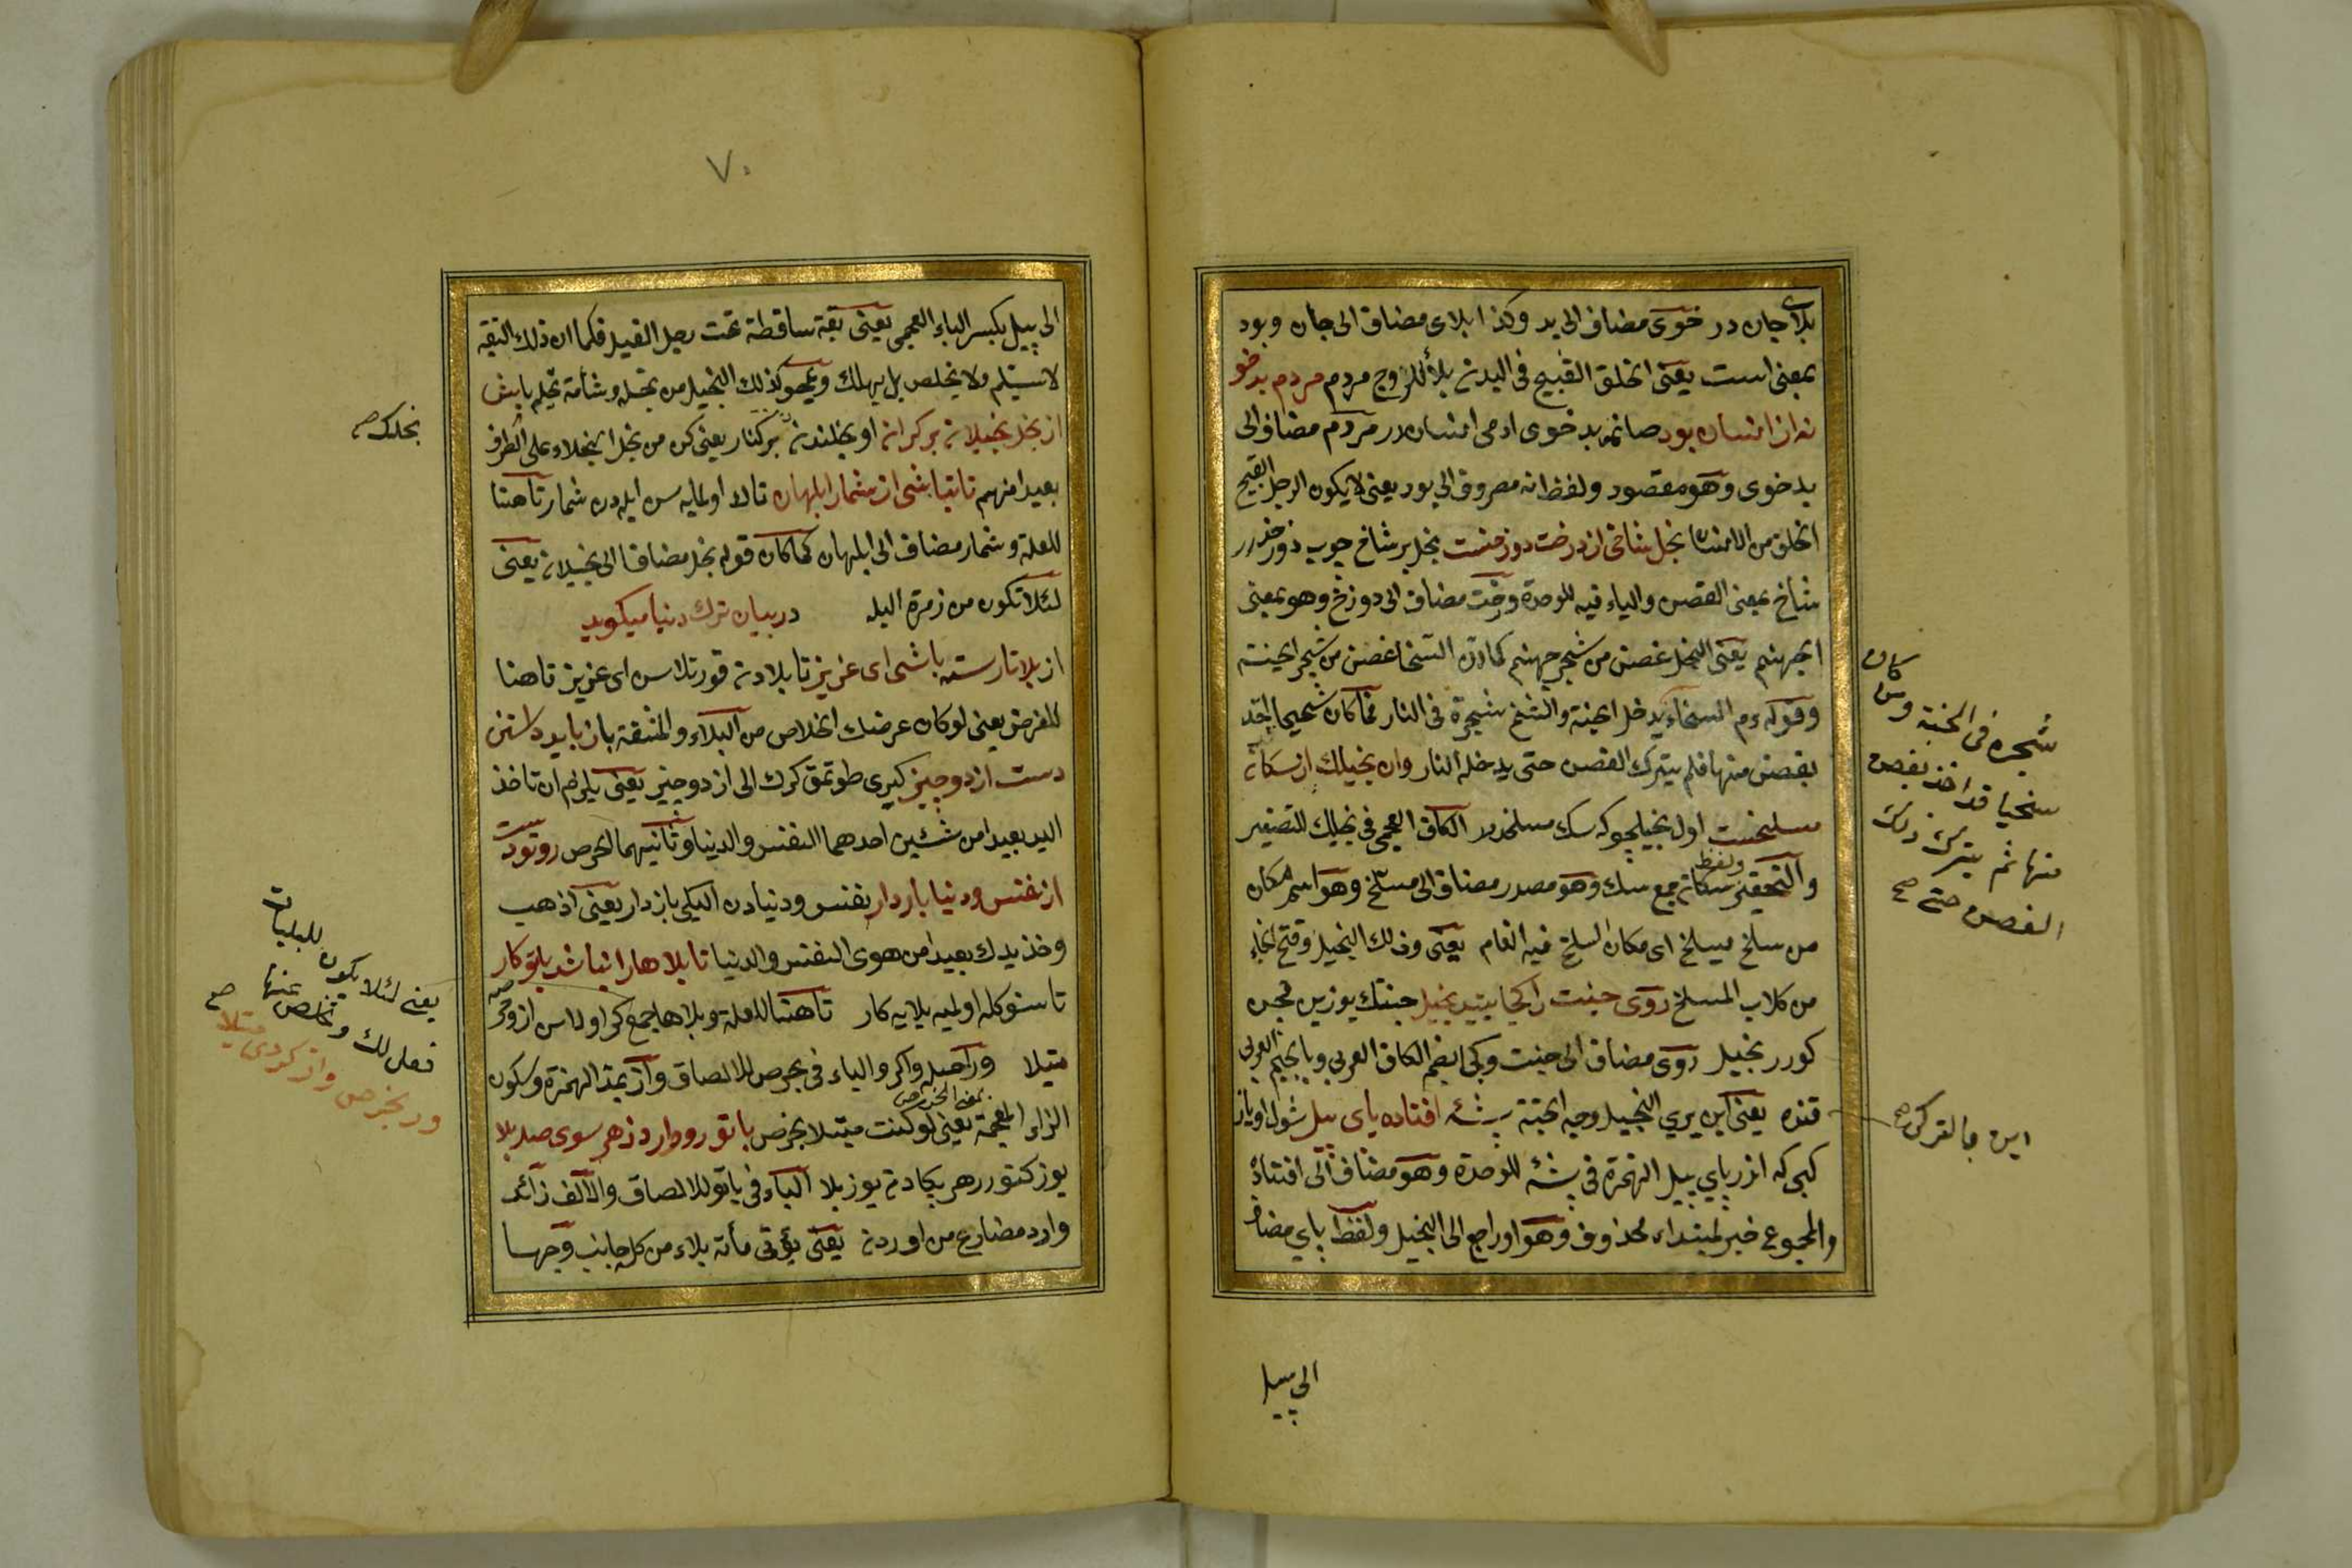 بلای جان در خوی مضاف الی بد وکذا بلای مضاف الی جان وبود
بمعنی است یعنی الخلق القبیح فی البدن بلأ للروح مردم مردم بدخو
نه از انسان بود صانمه بدخوی ادمی انساندر مردم مضاف الی
بدخوی وهو مقصود ولفظ نه مصروف الی بود یعنی لا یکون الرجل القبیح
الخلق من الانسان بخل شاخی از درخت دوزخست بخل بر شاخ جوب دوزخدر
شاخ بمعنی الغصن والیاء فیه للوحدة ودرخت مضاف الی دوزخ وهو بمعنی
الجهنم یعنی البخل غصن من شجر جهنم کما ان السخا غصن من شجر الجنة
وقوله ءم السخاء یدخل الجنة والشح شجرة فی النار فما کان شحیحا اخذ
بغصن منها فلم یترک الغصن حتی یدخله النار وان بخیلک از سکان
مسلخست اول بخیلجوکه سک مسلخدر الکاف العجمی فی بخیلک للتصغیر
والتحقیر ولفظ سکان جمع سک وهو مصدر مضاف الی مسلخ وهو اسم مکان
من سلخ یسلخ ای مکان السلخ فیه الغنم یعنی وذلک البخیل وقح الجاء
من کلاب المسلخ روی جنت را کجا بیند بخیل جنتک یوزین قجن
کورر بخیل روی مضاف الی جنت وکجا بضم الکاف العربی وبالجیم العربی
قنده یعنی این یری البخیل وجه الجنة پشه افتاده پای پیل شول اویاز
کبی که ازر پای پیل الهمزة فی پشه للوحدة وهو مضاف الی افتاده
والمجموع خبر لمبتداء محذوف وهو او راجع الی البخیل ولفظ پای مضاف
کان
شجره فی الجنة ومن
سخیا قد اخذ بغصن
منها ثم یترک ذلک
الغصن حتی صح
این بالترکی صح
الی پیل
٧٠
الی پیل بکسر الباء العجمی یعنی بقة ساقطة تحت رجل الفیل فکما ان ذلک البقه
لا یسلم ولا یخلص بل یهلک ویمحو کذلک البخیل من بخله وشأمة بخله باش
از بخل بخیلان بر کران او بخیللندن بر کنار یعنی کن من بخل البخلاء علی الطرف
بعیدا منهم تا نباشی از شمار ابلهان تا که اولمایه سن ابلهدن شمار تا هنا
للعلة وشمار مضاف الی ابلهان کما کان قوله بخل مضافا الی بخیلان یعنی
لئلا تکون من زمرة البله در بیان ترک دنیا میکوید
از بلا تا رسته باشی ای عزیز تا بلادن قورتلاسن ای عزیز تا هنا
للغرض یعنی لو کان غرضک الخلاص من البلاء والمشقة باز باید داشتن
دست از دو چیز کیرو طوتمق کرک الی از دو چیز یعنی یلزم ان تاخذ
الید بعیدا من شیئین احدهما النفس والدنیا وثانیهما الحرص رو تو دست
از نفس ودنیا باز دار نفس ودنیادن الیکی باز دار یعنی اذهب
وخذ یدک بعیدا من هوی النفس والدنیا تا بلاها را نباشد با تو کار
تا سنوکله اولمیه بلایه کار تا هنا للعلة وبلاها جمع کر اولاسن از وحرصه
مبتلا ور اصله واکر والیاء فی بحرص للالصاق وآز بمد الهمزة وسکون
الزاء المعجمة بمعنی الحرص یعنی لو کنت مبتلا بحرص با تو رو دارد ز هر سوی صد بلا
یوز کتورر هر یکادن یوز بلا الباء فی باتو للالصاق والالف زائد
وارد مضارع من اوردن یعنی یؤتی مأة بلاء من کل جانب وجها
بخلک صح
یعنی لئلا یکون للبلیات
فعل لک وتخلص عنها صح
ور بحرص واز کردی مبتلا